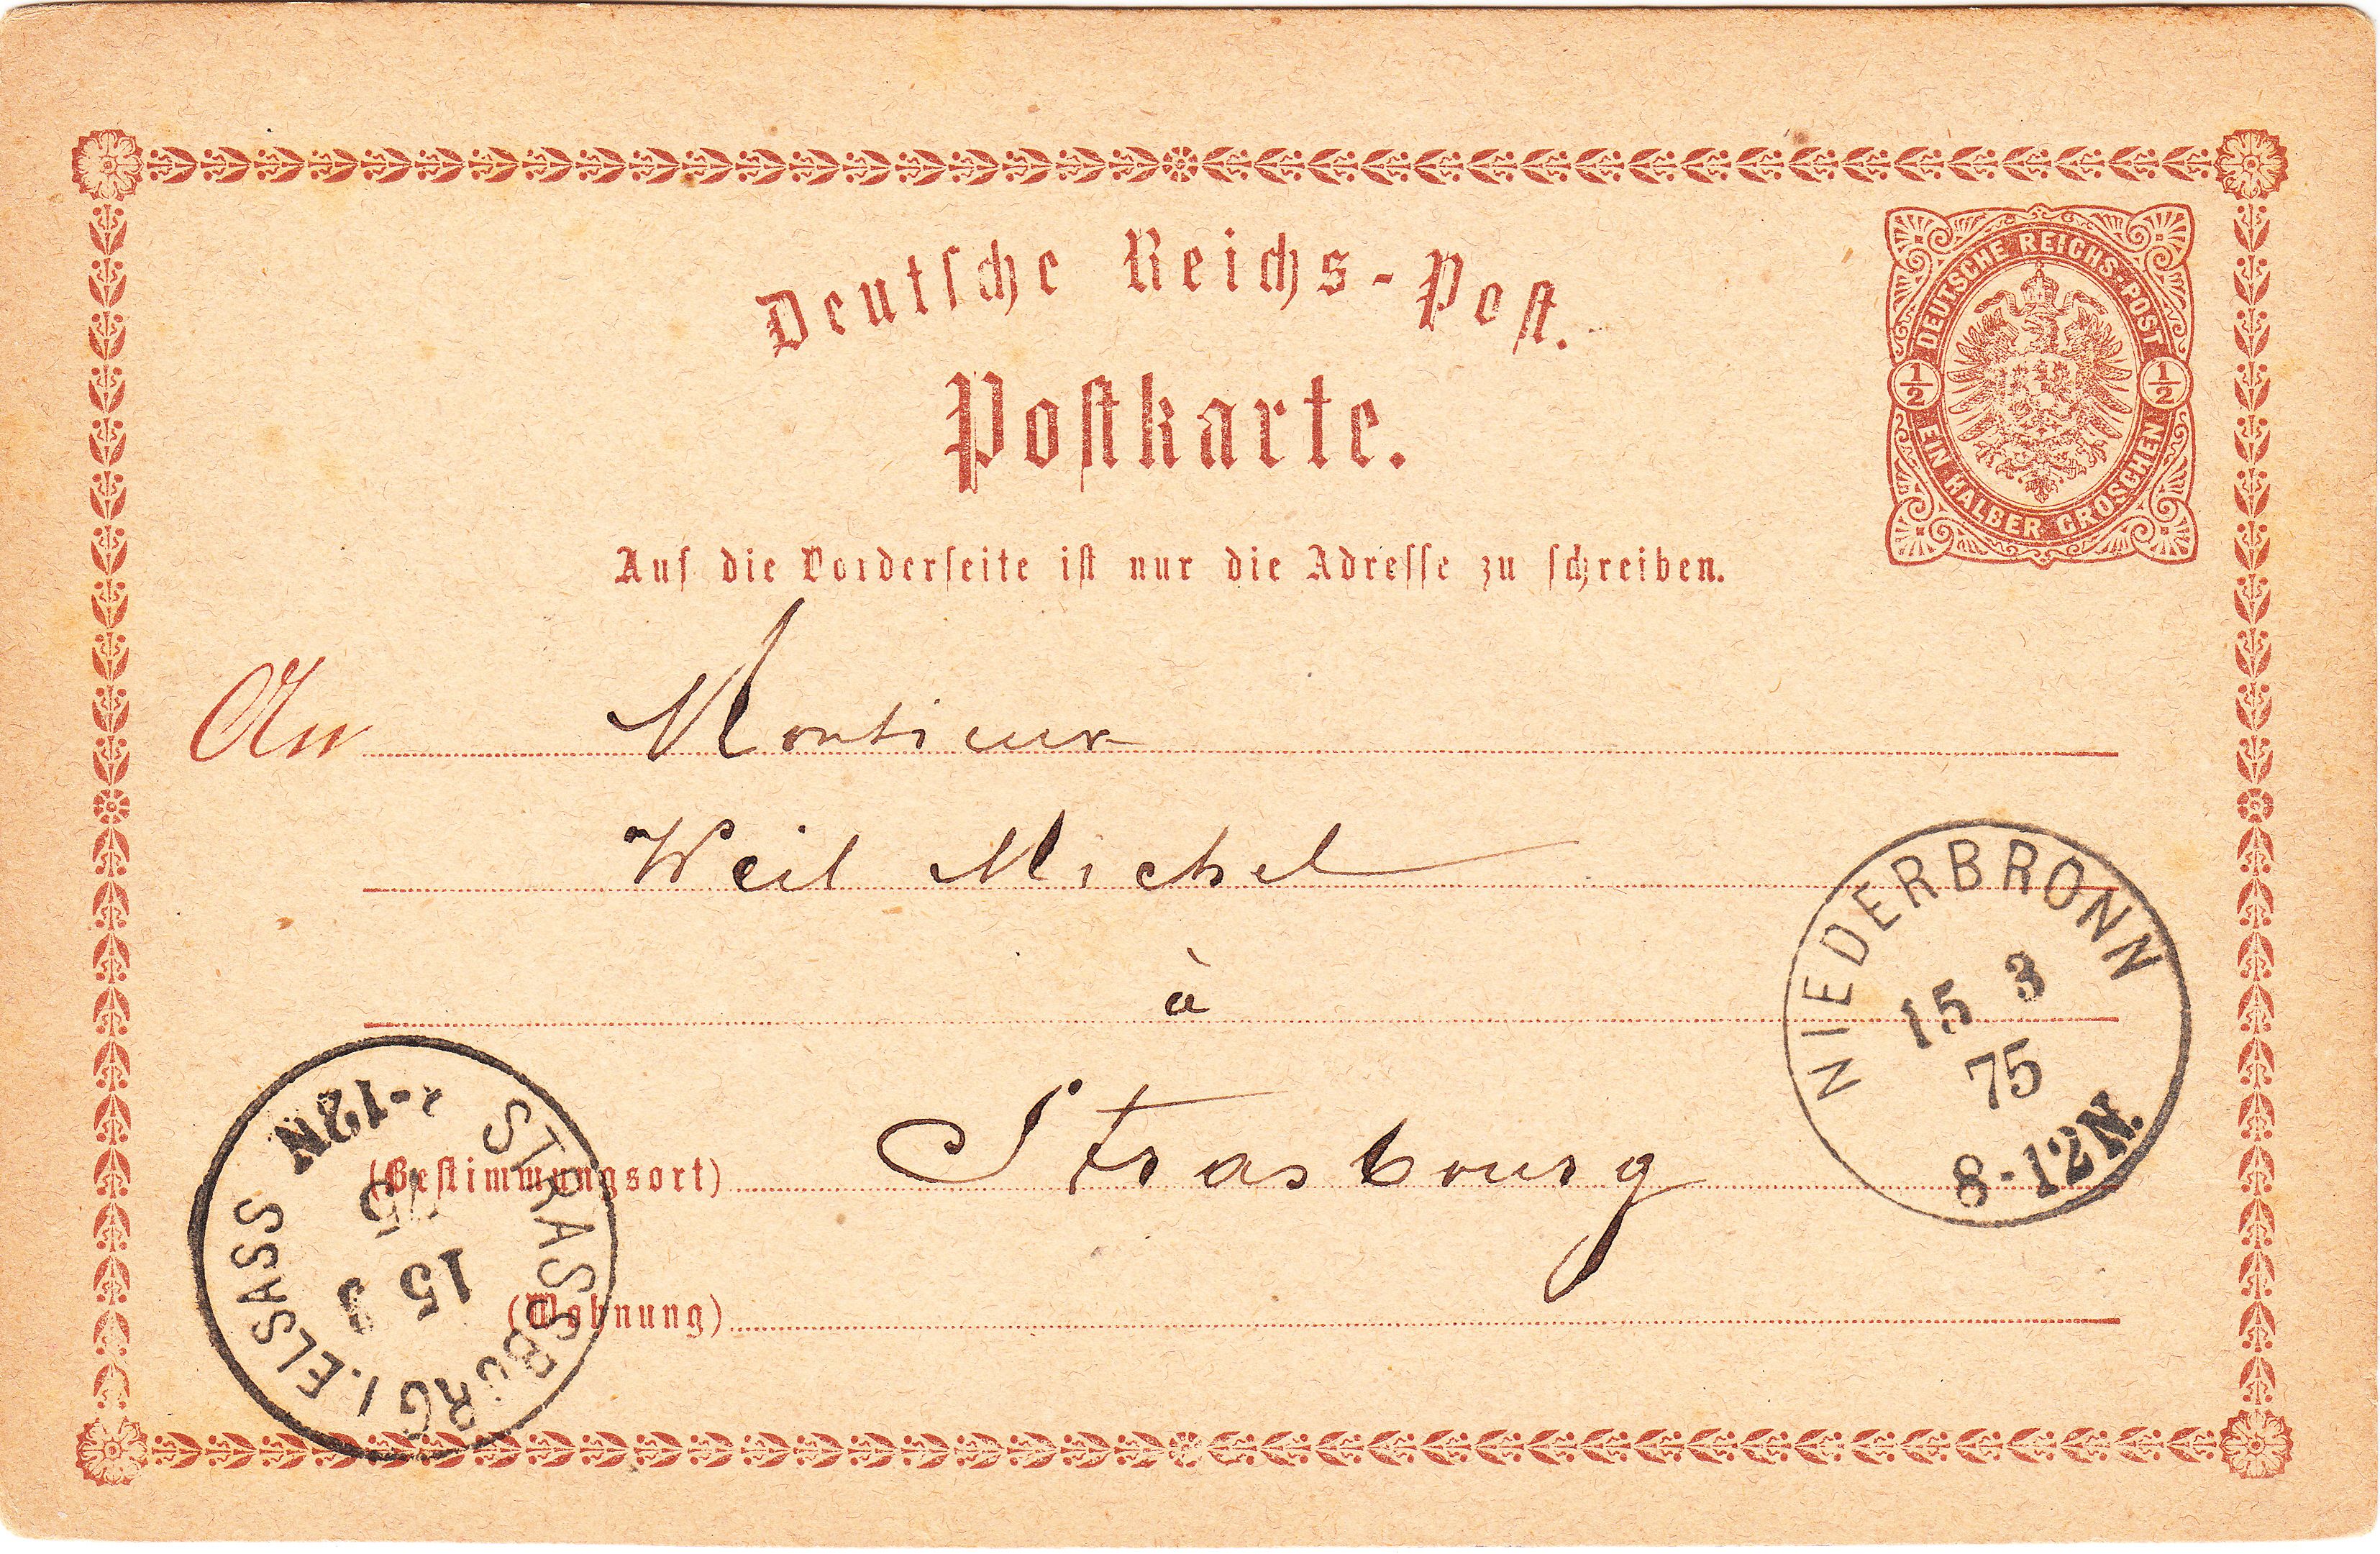 Deutsche Reichs-Post.
Postkarte.
DEUTSCHE REICHS-POST
1/2 1/2
EIN HALBER GROSCHEN
Auf die Vorderseite ist nur die Adresse zu schreiben.
An Monsieur
Weil Michel
à
(Bestimmungsort) Strasbourg
(Wohnung)
NIEDERBRONN
15 3
75
8-12N.
STRASSBURG I. ELSASS
15 3
75
-12N